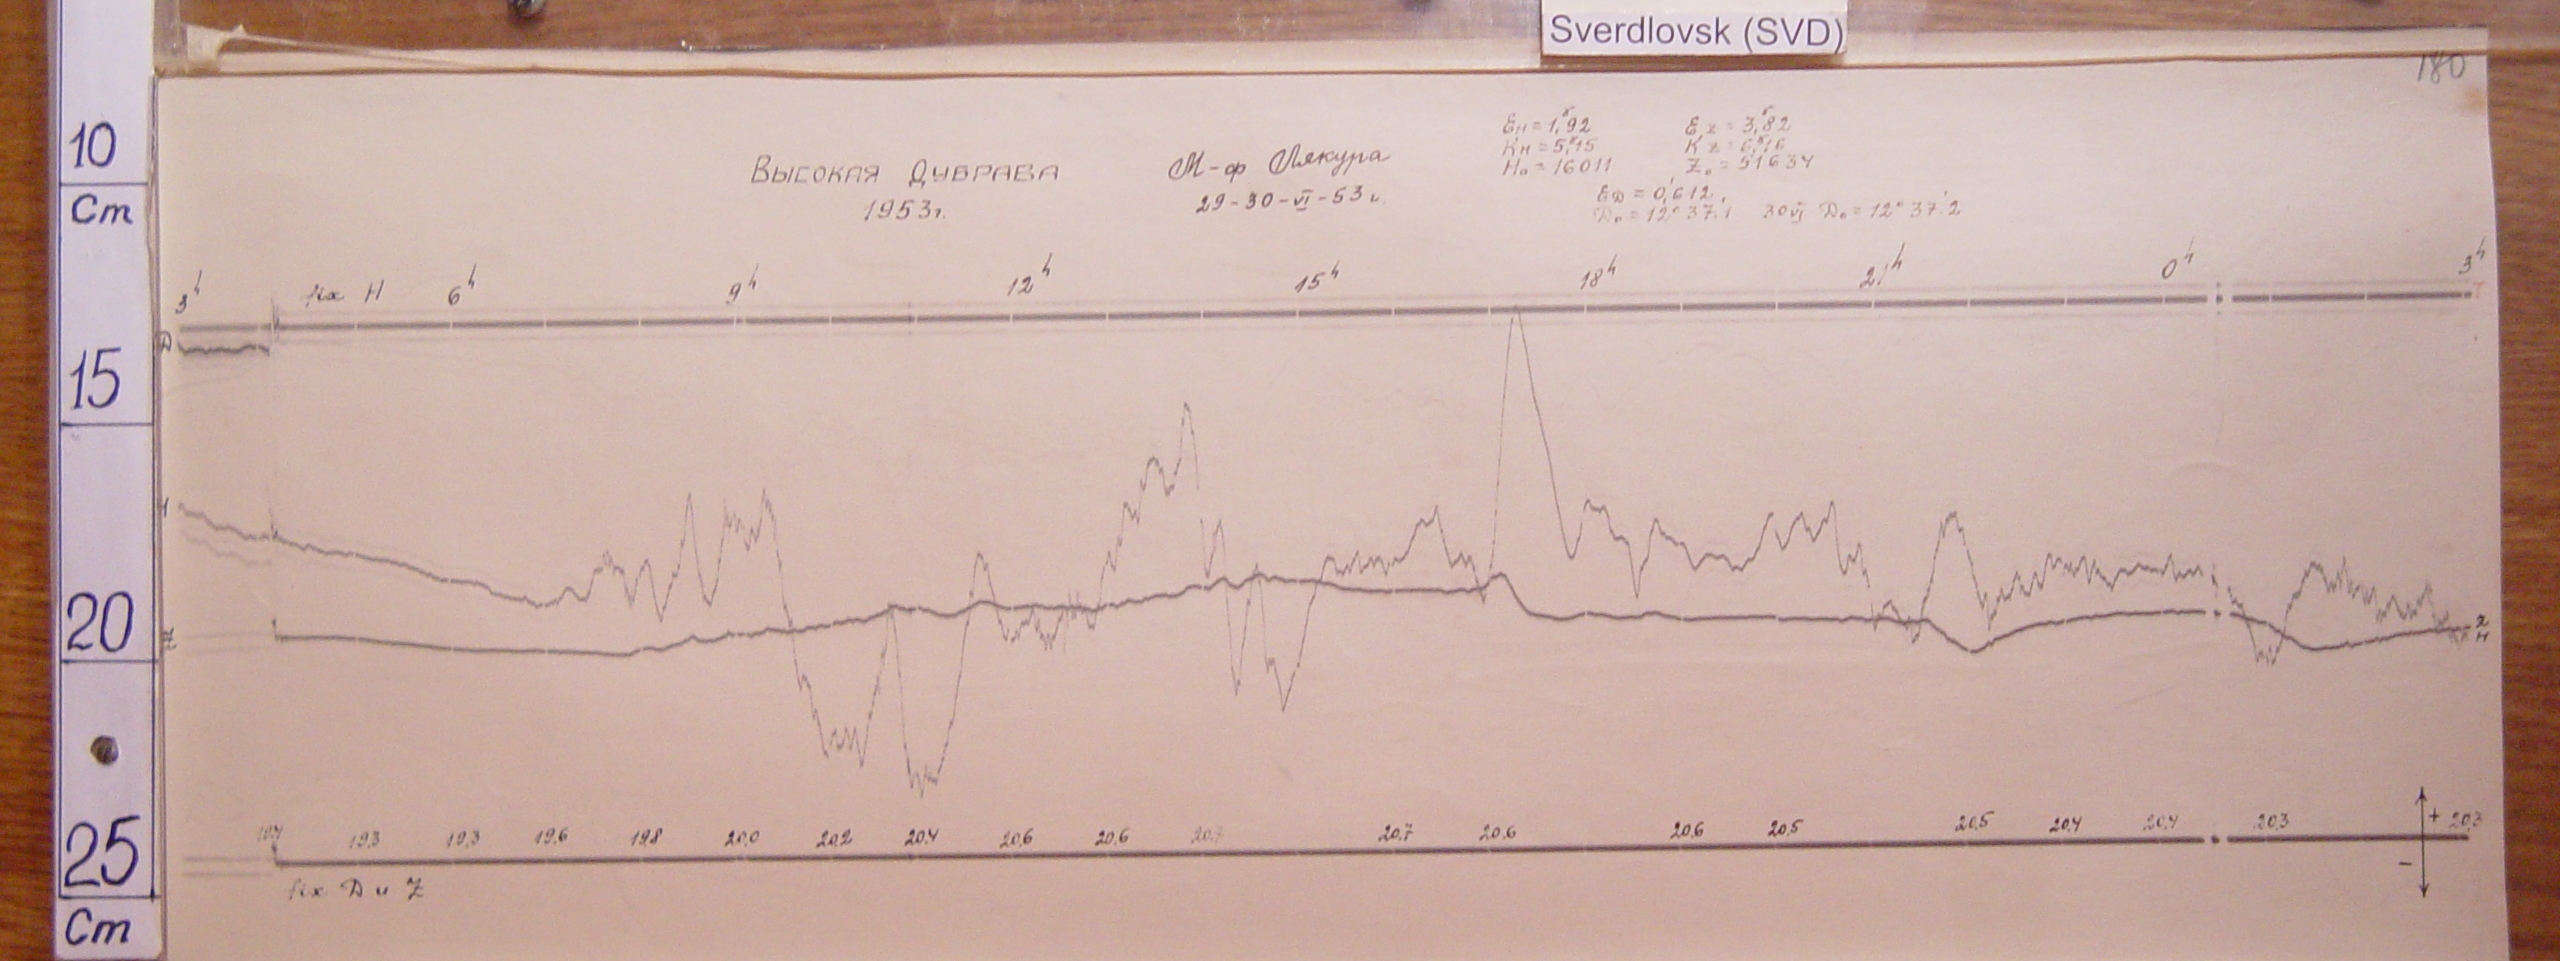 Sverdlovsk (SVD)
180
10
Cm
15
20
25
Cm
ВЫСОКАЯ ДУБРАВА
1953г.
М-ф Лякура
29-30-VI-53г.
EH=1,ˠ92
KH=5,ˠ15
H₀=16011
EZ=3,ˠ82
Z₀=51634
ED=0,′612
D₀=12°37.′1 30VI D₀=12°37.′2
3ʰ fix H 6ʰ 9ʰ 12ʰ 15ʰ 18ʰ 21ʰ 0ʰ 3ʰ
T
D
H
Z
Z
H
19.3 19.3 19.6 19.8 20.0 20.2 20.4 20.6 20.6 20.7 20.7 20.6 20.6 20.5 20.5 20.4 20.4 20.3 20.3
+
−
fix D и Z